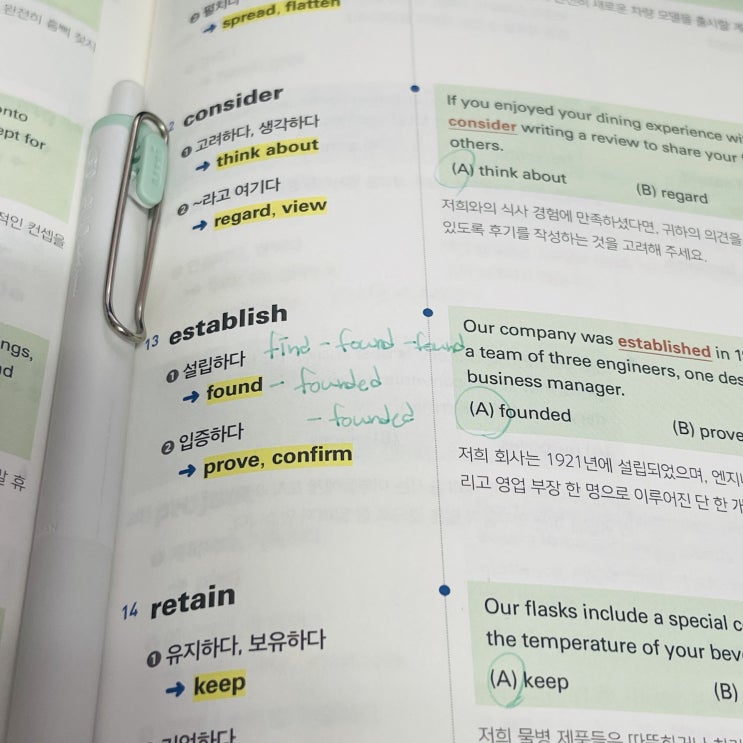 완전히
onto
ept for
적인 컨셉을
ngs,
d
휴
❷ 펼치다
→ spread, flatten
2 consider
❶ 고려하다, 생각하다
→ think about
❷ ~라고 여기다
→ regard, view
13 establish
find - found - found
❶ 설립하다
→ found - founded
- founded
❷ 입증하다
→ prove, confirm
14 retain
❶ 유지하다, 보유하다
→ keep
기억하다
새로운 차량 모델을 출시할
If you enjoyed your dining experience wi
consider writing a review to share your
others.
(A) think about (B) regard
저희와의 식사 경험에 만족하셨다면, 귀하의 의견을
있도록 후기를 작성하는 것을 고려해 주세요.
Our company was established in 1
a team of three engineers, one des
business manager.
(A) founded (B) prove
저희 회사는 1921년에 설립되었으며, 엔지니
리고 영업 부장 한 명으로 이루어진 단 한 개
Our flasks include a special c
the temperature of your bev
(A) keep (B)
저희 물병 제품들은